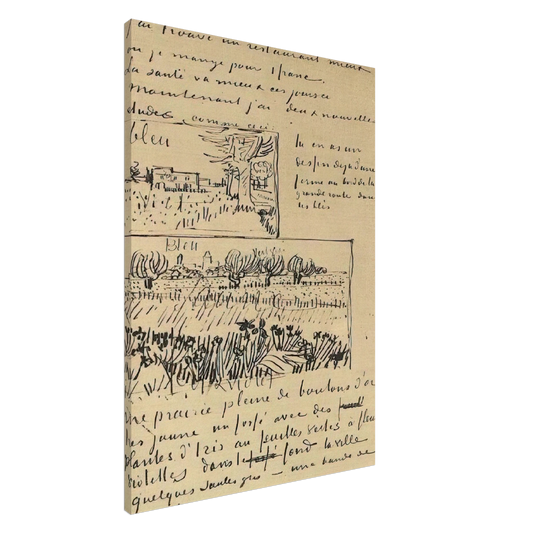 J'ai trouvé un restaurant mieux
ou je mange pour 1 franc.
la santé va mieux ces jours ci
maintenant j'ai deux nouvelles
études comme ceci
bleu
tu en as un
dessin déjà d'une
ferme au bord de la
grande route dans
les blés
Bleu
Violet
une prairie pleine de boutons d'or
très jaune un fossé avec des
plantes d'Iris au feuilles vertes à fleurs
violettes dans le fond la ville
quelques saules gris – une bande de